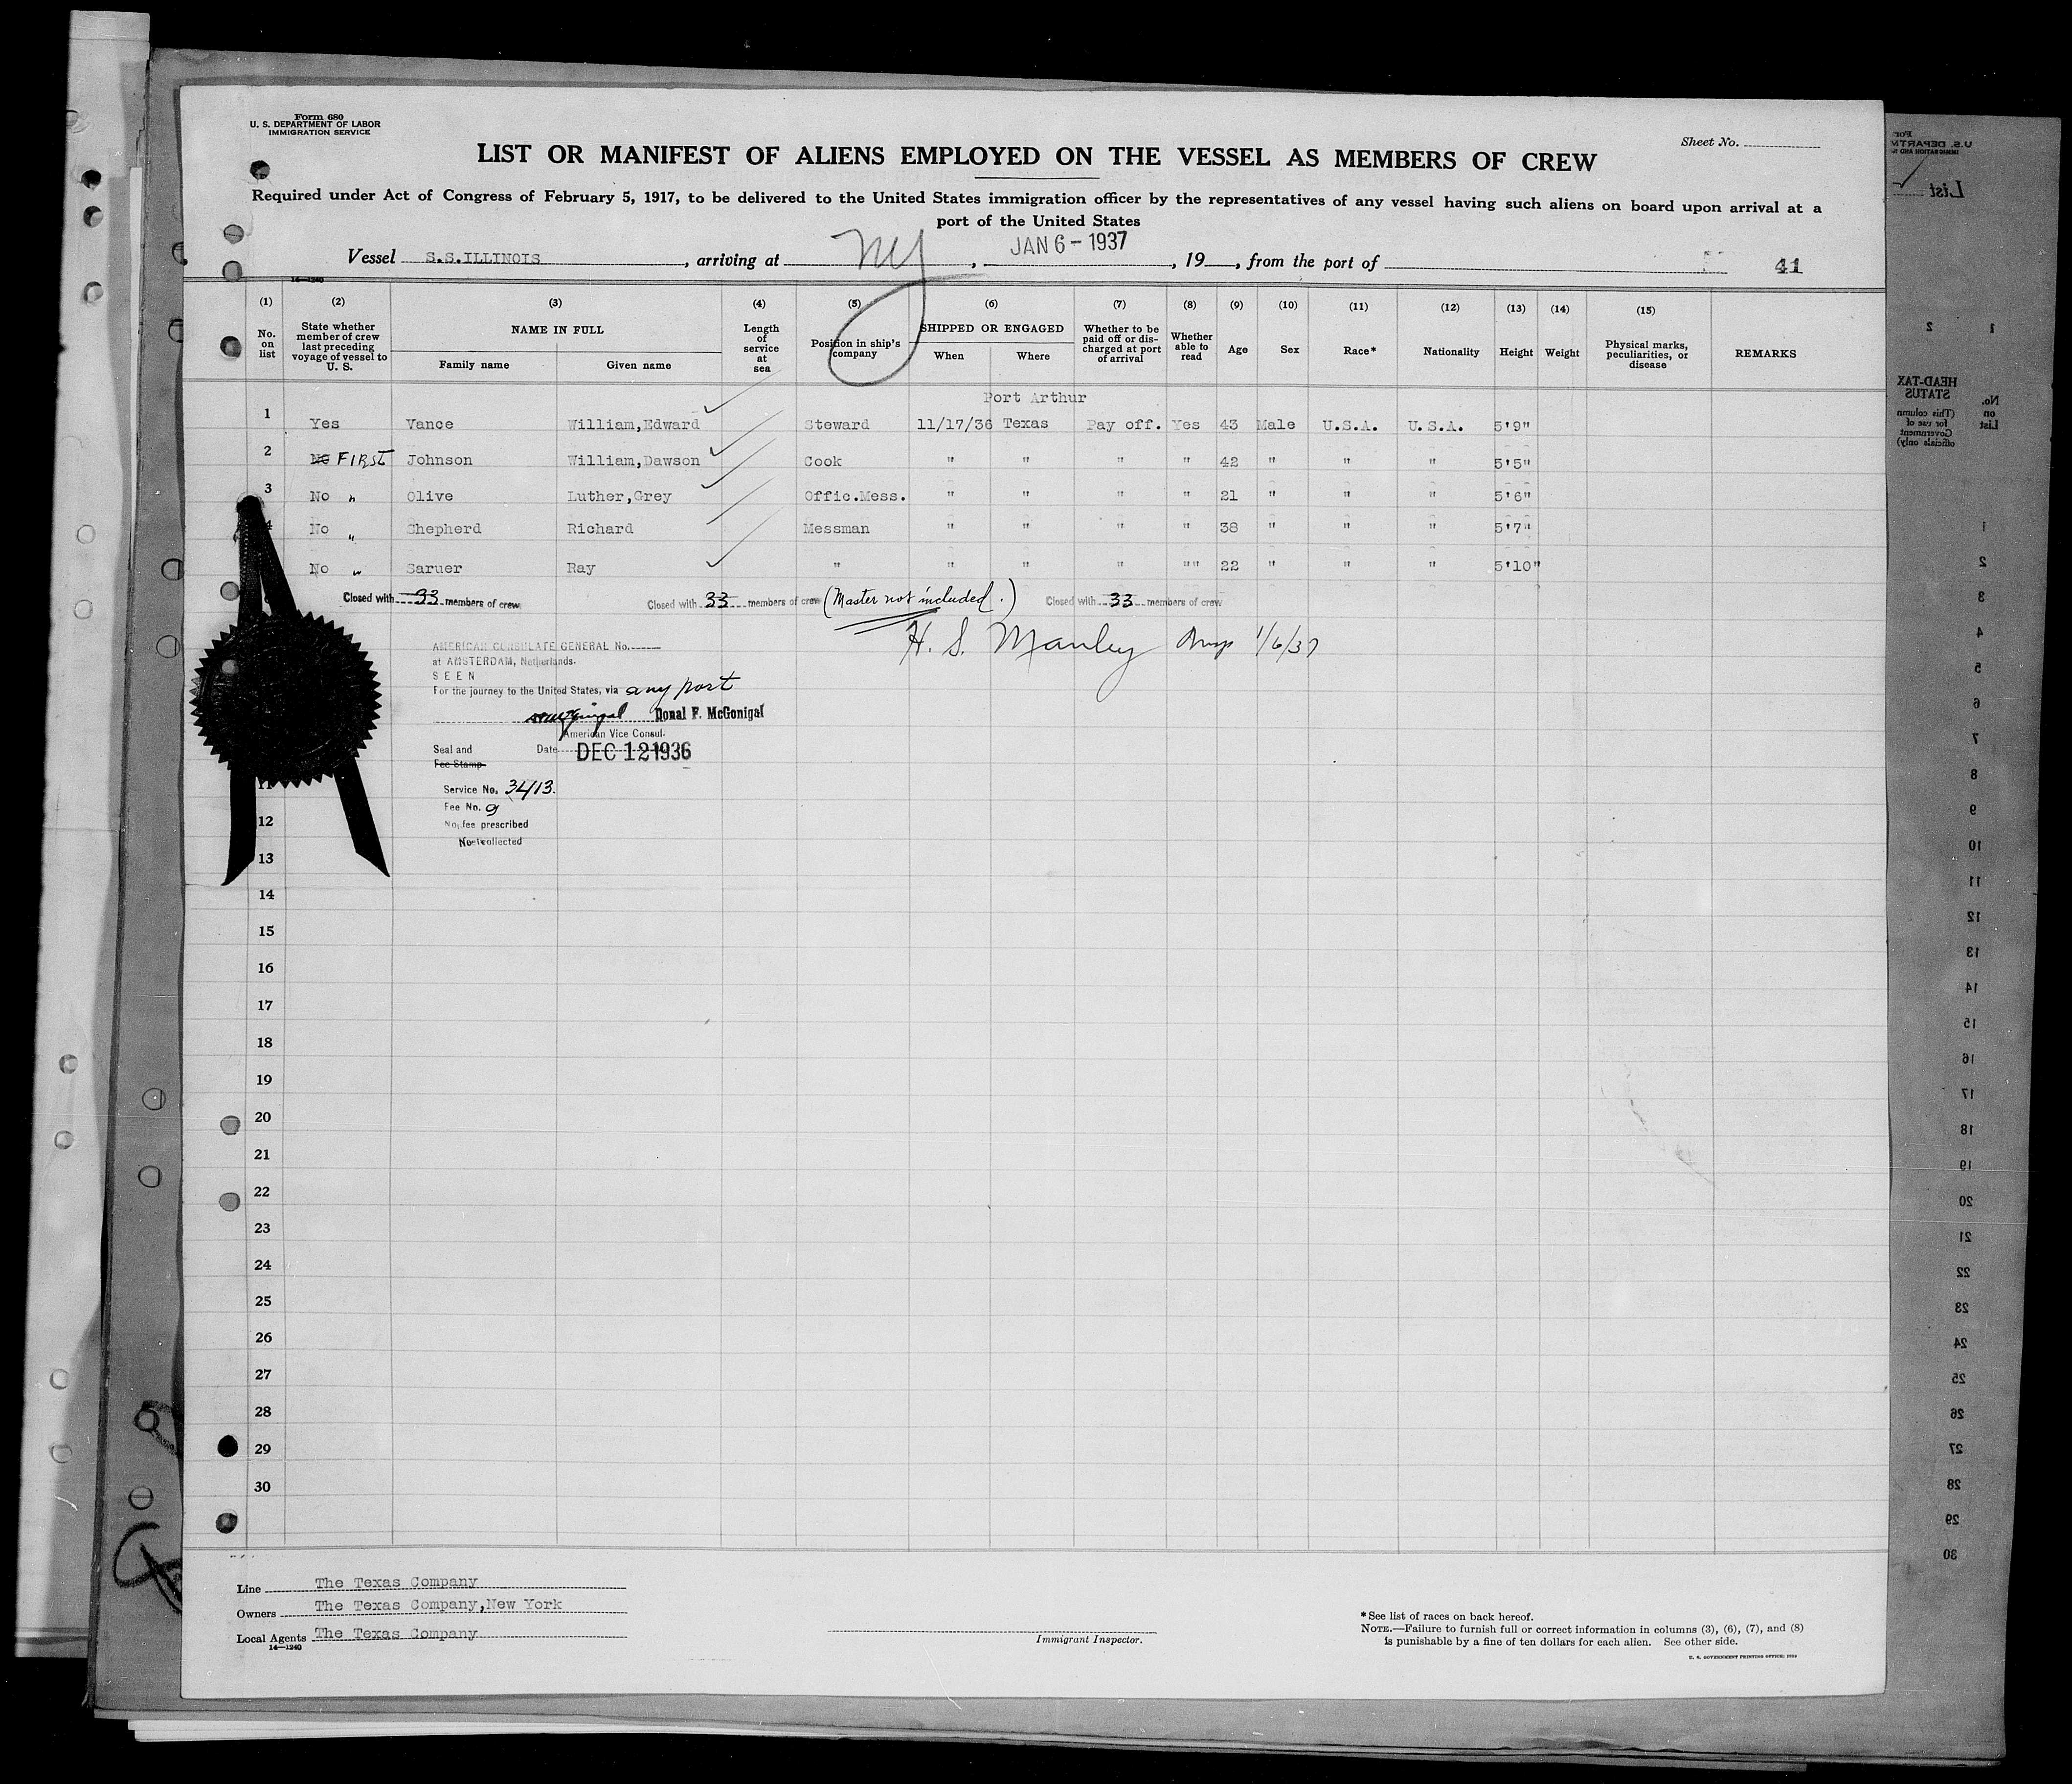 Form 680
U. S. DEPARTMENT OF LABOR
IMMIGRATION SERVICE
Sheet No.
LIST OR MANIFEST OF ALIENS EMPLOYED ON THE VESSEL AS MEMBERS OF CREW
Required under Act of Congress of February 5, 1917, to be delivered to the United States immigration officer by the representatives of any vessel having such aliens on board upon arrival at a
port of the United States
Vessel S.S.ILLINOIS, arriving at NY, JAN 6 - 1937, 19__, from the port of 41
14-1240
(1) (2) (3) (4) (5) (6) (7) (8) (9) (10) (11) (12) (13) (14) (15)
No. on list
State whether member of crew last preceding voyage of vessel to U. S.
NAME IN FULL
Family name Given name
Length of service at sea
Position in ship's company
SHIPPED OR ENGAGED
When Where
Whether to be paid off or discharged at port of arrival
Whether able to read
Age Sex Race* Nationality Height Weight
Physical marks, peculiarities, or disease
REMARKS
Port Arthur
1 Yes Vance William,Edward Steward 11/17/36 Texas Pay off. Yes 43 Male U.S.A. U.S.A. 5'9"
2 No FIRST Johnson William,Dawson Cook " " " " 42 " " " 5'5"
3 No " Olive Luther,Grey Offic.Mess. " " " " 21 " " " 5'6"
4 No " Shepherd Richard Messman " " " " 38 " " " 5'7"
No " Saruer Ray " " " " "" 22 " " " 5'10"
Closed with 33 members of crew Closed with 33 members of crew (Master not included.) Closed with 33 members of crew
H. S. Manley 1/6/37
AMERICAN CONSULATE GENERAL No.
at AMSTERDAM, Netherlands.
SEEN
For the journey to the United States, via any port
Donal F. McGonigal
American Vice Consul.
Seal and Date DEC 12 1936
Fee Stamp
Service No. 3413.
Fee No. 9
No fee prescribed
Not collected
11
12
13
14
15
16
17
18
19
20
21
22
23
24
25
26
27
28
29
30
Line The Texas Company
Owners The Texas Company,New York
Local Agents The Texas Company
14-1240
Immigrant Inspector.
*See list of races on back hereof.
NOTE.—Failure to furnish full or correct information in columns (3), (6), (7), and (8)
is punishable by a fine of ten dollars for each alien. See other side.
U. S. GOVERNMENT PRINTING OFFICE
List
1 2
HEAD-TAX STATUS
(This column for use of Government officials only)
No. on List
1
2
3
4
5
6
7
8
9
10
11
12
13
14
15
16
17
18
19
20
21
22
23
24
25
26
27
28
29
30